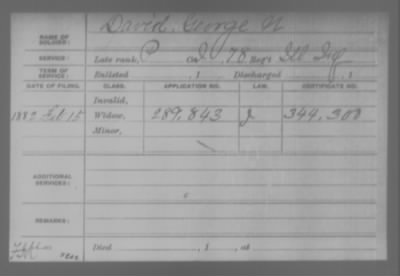 David, George N
NAME OF SOLDIER:
SERVICE: Late rank, P Co. I, 78 Reg't Ill Inf
TERM OF SERVICE: Enlisted , 1 Discharged , 1
DATE OF FILING. CLASS. APPLICATION NO. LAW. CERTIFICATE NO.
Invalid,
1882 Feb 15 Widow, 289,843 J 344,300
Minor,
ADDITIONAL SERVICES:
REMARKS:
Died , 1 , at